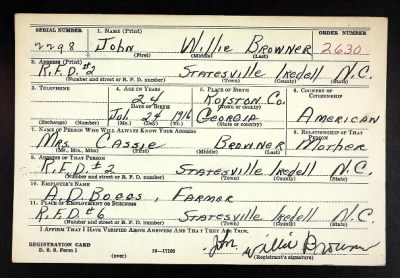 SERIAL NUMBER 1. NAME (Print) ORDER NUMBER
2298 John Willie Browner 2630
(First) (Middle) (Last)
2. ADDRESS (Print)
R.F.D. #2 Statesville Iredell N.C.
(Number and street or R. F. D. number) (Town) (County) (State)
3. TELEPHONE 4. AGE IN YEARS 5. PLACE OF BIRTH 6. COUNTRY OF CITIZENSHIP
24 Royston Co.
DATE OF BIRTH (Town or county)
Jan 24 1916 Georgia American
(Exchange) (Number) (Mo.) (Day) (Yr.) (State or country)
7. NAME OF PERSON WHO WILL ALWAYS KNOW YOUR ADDRESS 8. RELATIONSHIP OF THAT PERSON
Mrs. Cassie Browner Mother
(Mr., Mrs., Miss) (First) (Middle) (Last)
9. ADDRESS OF THAT PERSON
R.F.D #2 Statesville Iredell N.C.
(Number and street or R. F. D. number) (Town) (County) (State)
10. EMPLOYER'S NAME
A.D. Boggs, Farmer
11. PLACE OF EMPLOYMENT OR BUSINESS
R.F.D. #6 Statesville Iredell N.C.
(Number and street or R. F. D. number) (Town) (County) (State)
I AFFIRM THAT I HAVE VERIFIED ABOVE ANSWERS AND THAT THEY ARE TRUE.
REGISTRATION CARD John Willie Browner
D. S. S. Form 1 (over) 16—17105 (Registrant's signature)